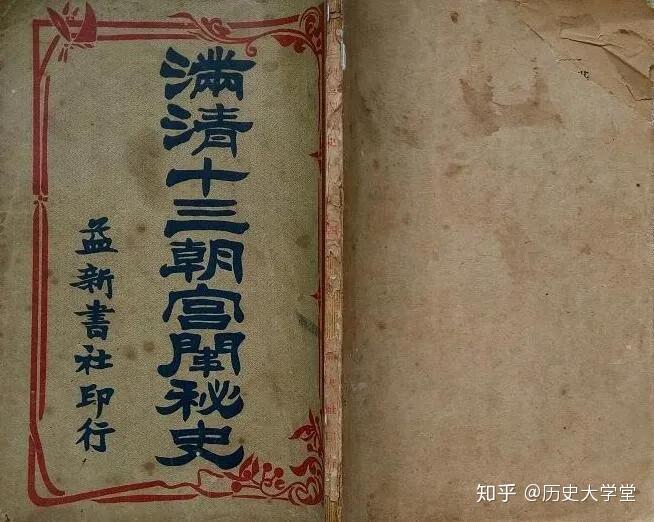 满清十三朝宫闱秘史
益新書社印行
知乎 @历史大学堂